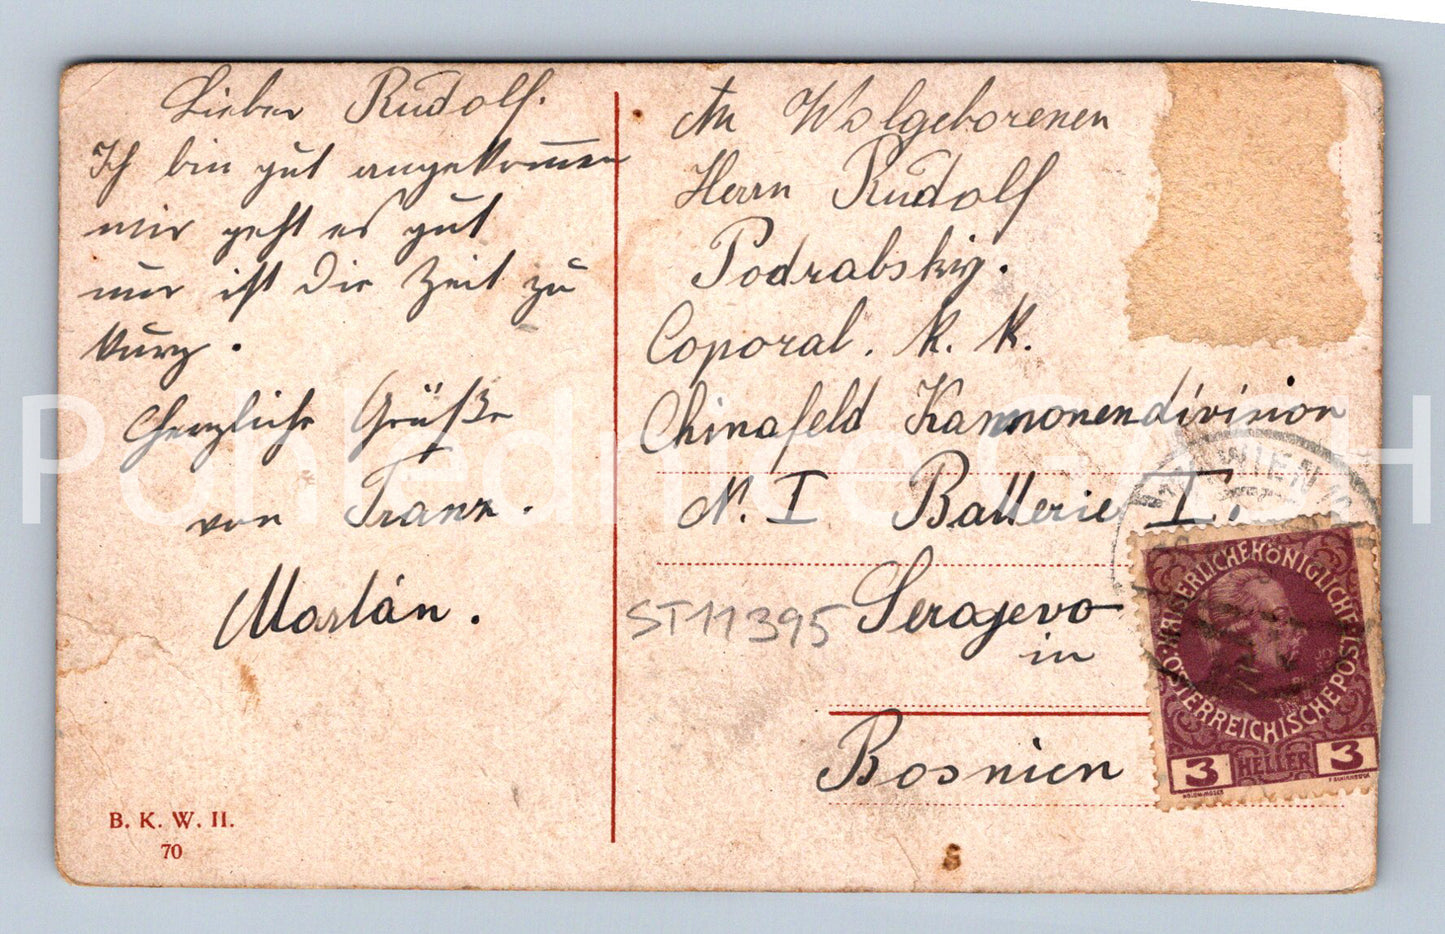 Lieber Rudolf.
Ich bin gut angekommen
mir geht es gut
nur ist die Zeit zu
kurz.
Herzliche Grüße
von Franz.
Maslán.
B. K. W. II.
70
An Wolgeborenen
Herrn Rudolf
Podrabskiy.
Coporal. k. k.
Chinafeld Kannonendivision
N. I Batterie I.
Serajevo
in
Bosnien
ST11395
WIEN
KAISERLICHEKÖNIGLICHE
ÖSTERREICHISCHEPOST
3 HELLER 3
Pohlednice